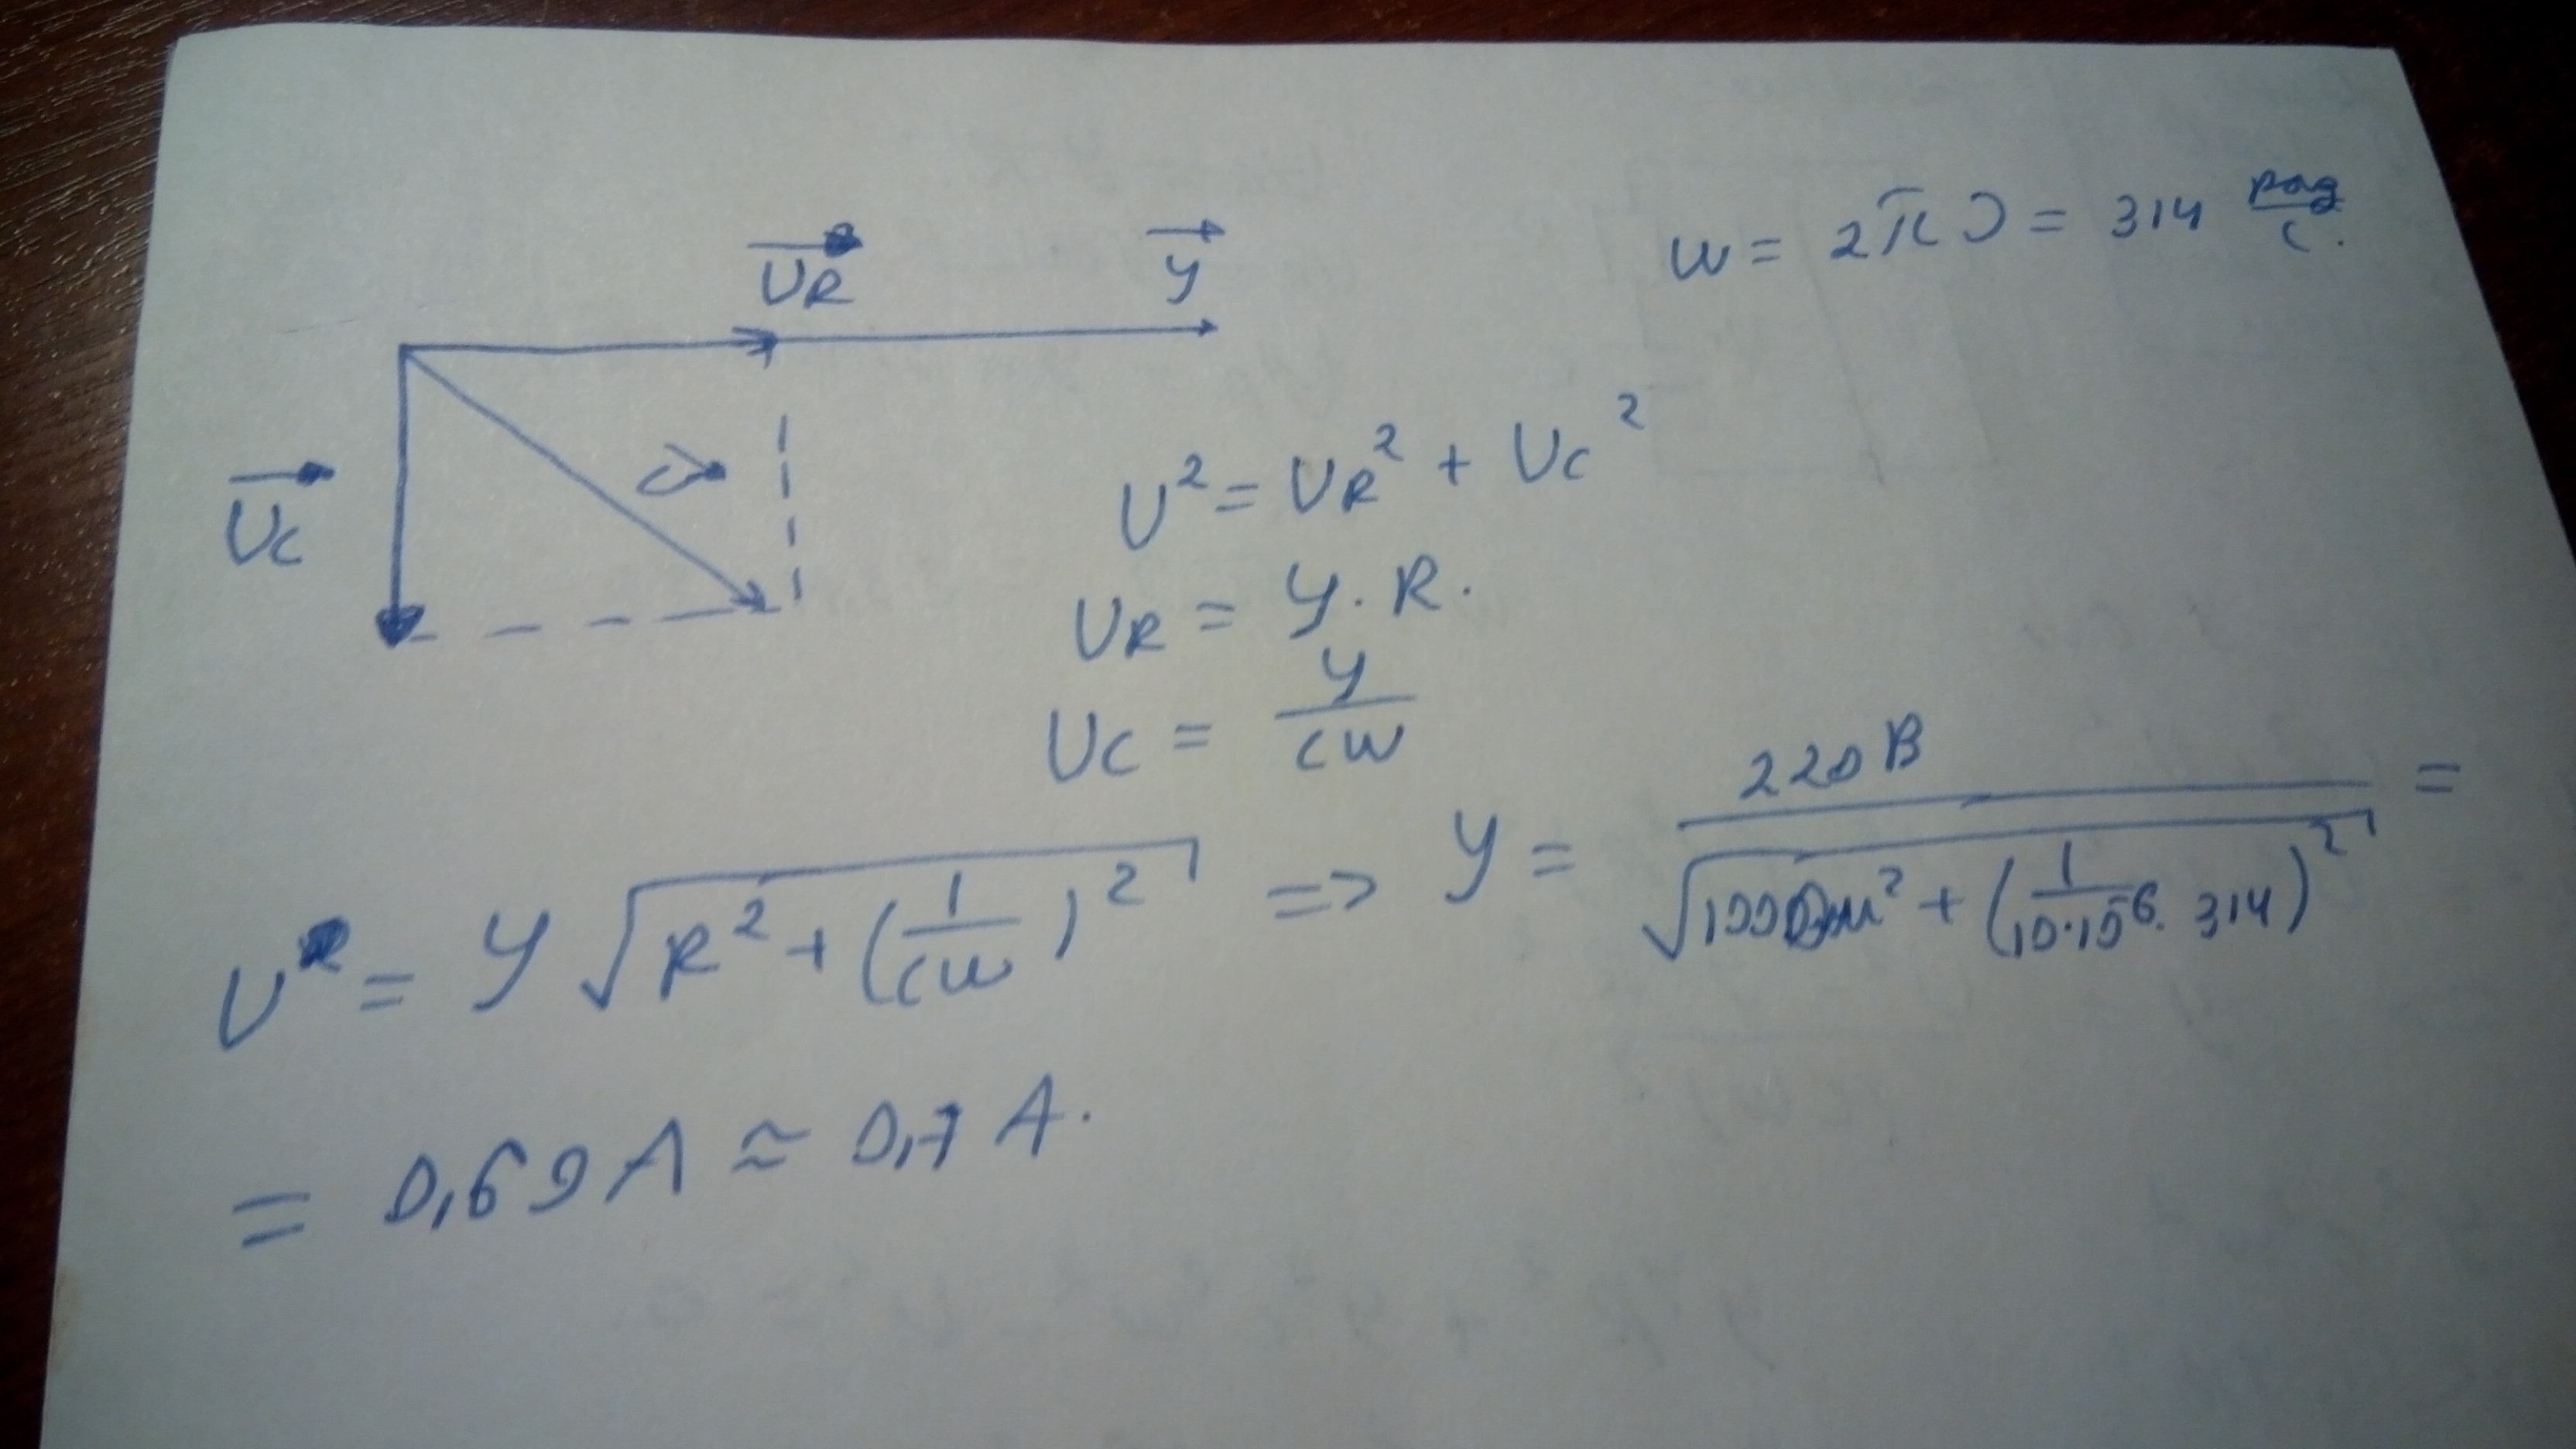 UR y
ω = 2πν = 314 рад/с.
Uc U
U² = UR² + Uc²
UR = y · R.
Uc = y/cω
U = y √(R² + (1/cω)²) => y = 220 В / √(1000 Ом² + (1/(10·10⁻⁶ · 314))²) =
= 0,69 A ≈ 0,7 A.